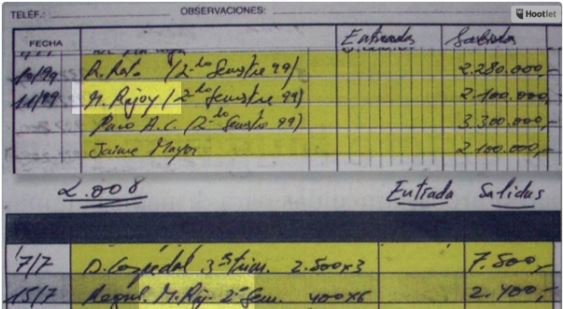 TELÉF.: OBSERVACIONES:
Hootlet
FECHA Entradas Salidas
10/99 R. Rato (2º Semestre 99) 2.280.000,-
11/99 M. Rajoy (2º Semestre 99) 2.100.000,-
Paco A.C. (2º Semestre 99) 3.300.000,-
Jaime Mayor 2.100.000,-
2.008 Entrada Salidas
7/7 D. Cospedal 3 trim. 2.500x3 7.500,-
15/7 M. Raj. 2º Sem. 400x6 2.400,-